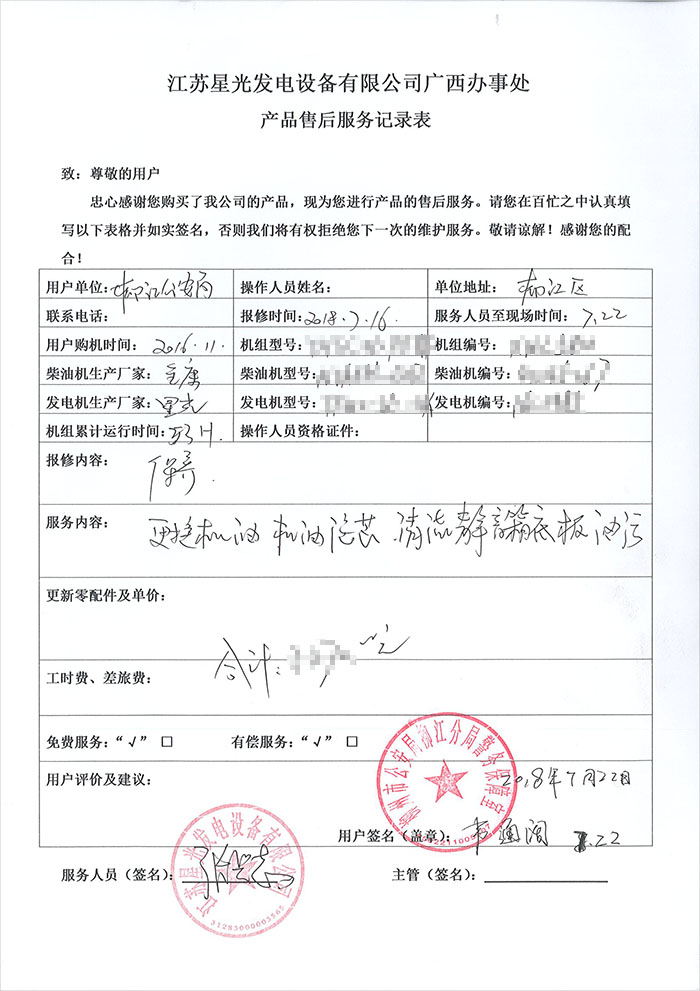 江苏星光发电设备有限公司广西办事处
产品售后服务记录表
致：尊敬的用户
忠心感谢您购买了我公司的产品，现为您进行产品的售后服务。请您在百忙之中认真填
写以下表格并如实签名，否则我们将有权拒绝您下一次的维护服务。敬请谅解！感谢您的配
合！
用户单位：柳江公安局 操作人员姓名： 单位地址：柳江区
联系电话： 报修时间：2018.7.16 服务人员至现场时间：7.22
用户购机时间：2016.11. 机组型号： 机组编号：
柴油机生产厂家： 柴油机型号： 柴油机编号：
发电机生产厂家：星光 发电机型号： 发电机编号：
机组累计运行时间： 操作人员资格证件：
报修内容：保养.
服务内容：更换机油 机油滤芯.清洗静音箱底板油污
更新零配件及单价：
合计：
工时费、差旅费：
免费服务：“√” □ 有偿服务：“√” □
用户评价及建议：
柳州市公安局柳江分局警务保障室
2018年7月22日
用户签名（盖章）：韦通阔 7.22
江苏星光发电设备有限公司
服务人员（签名）： 主管（签名）：